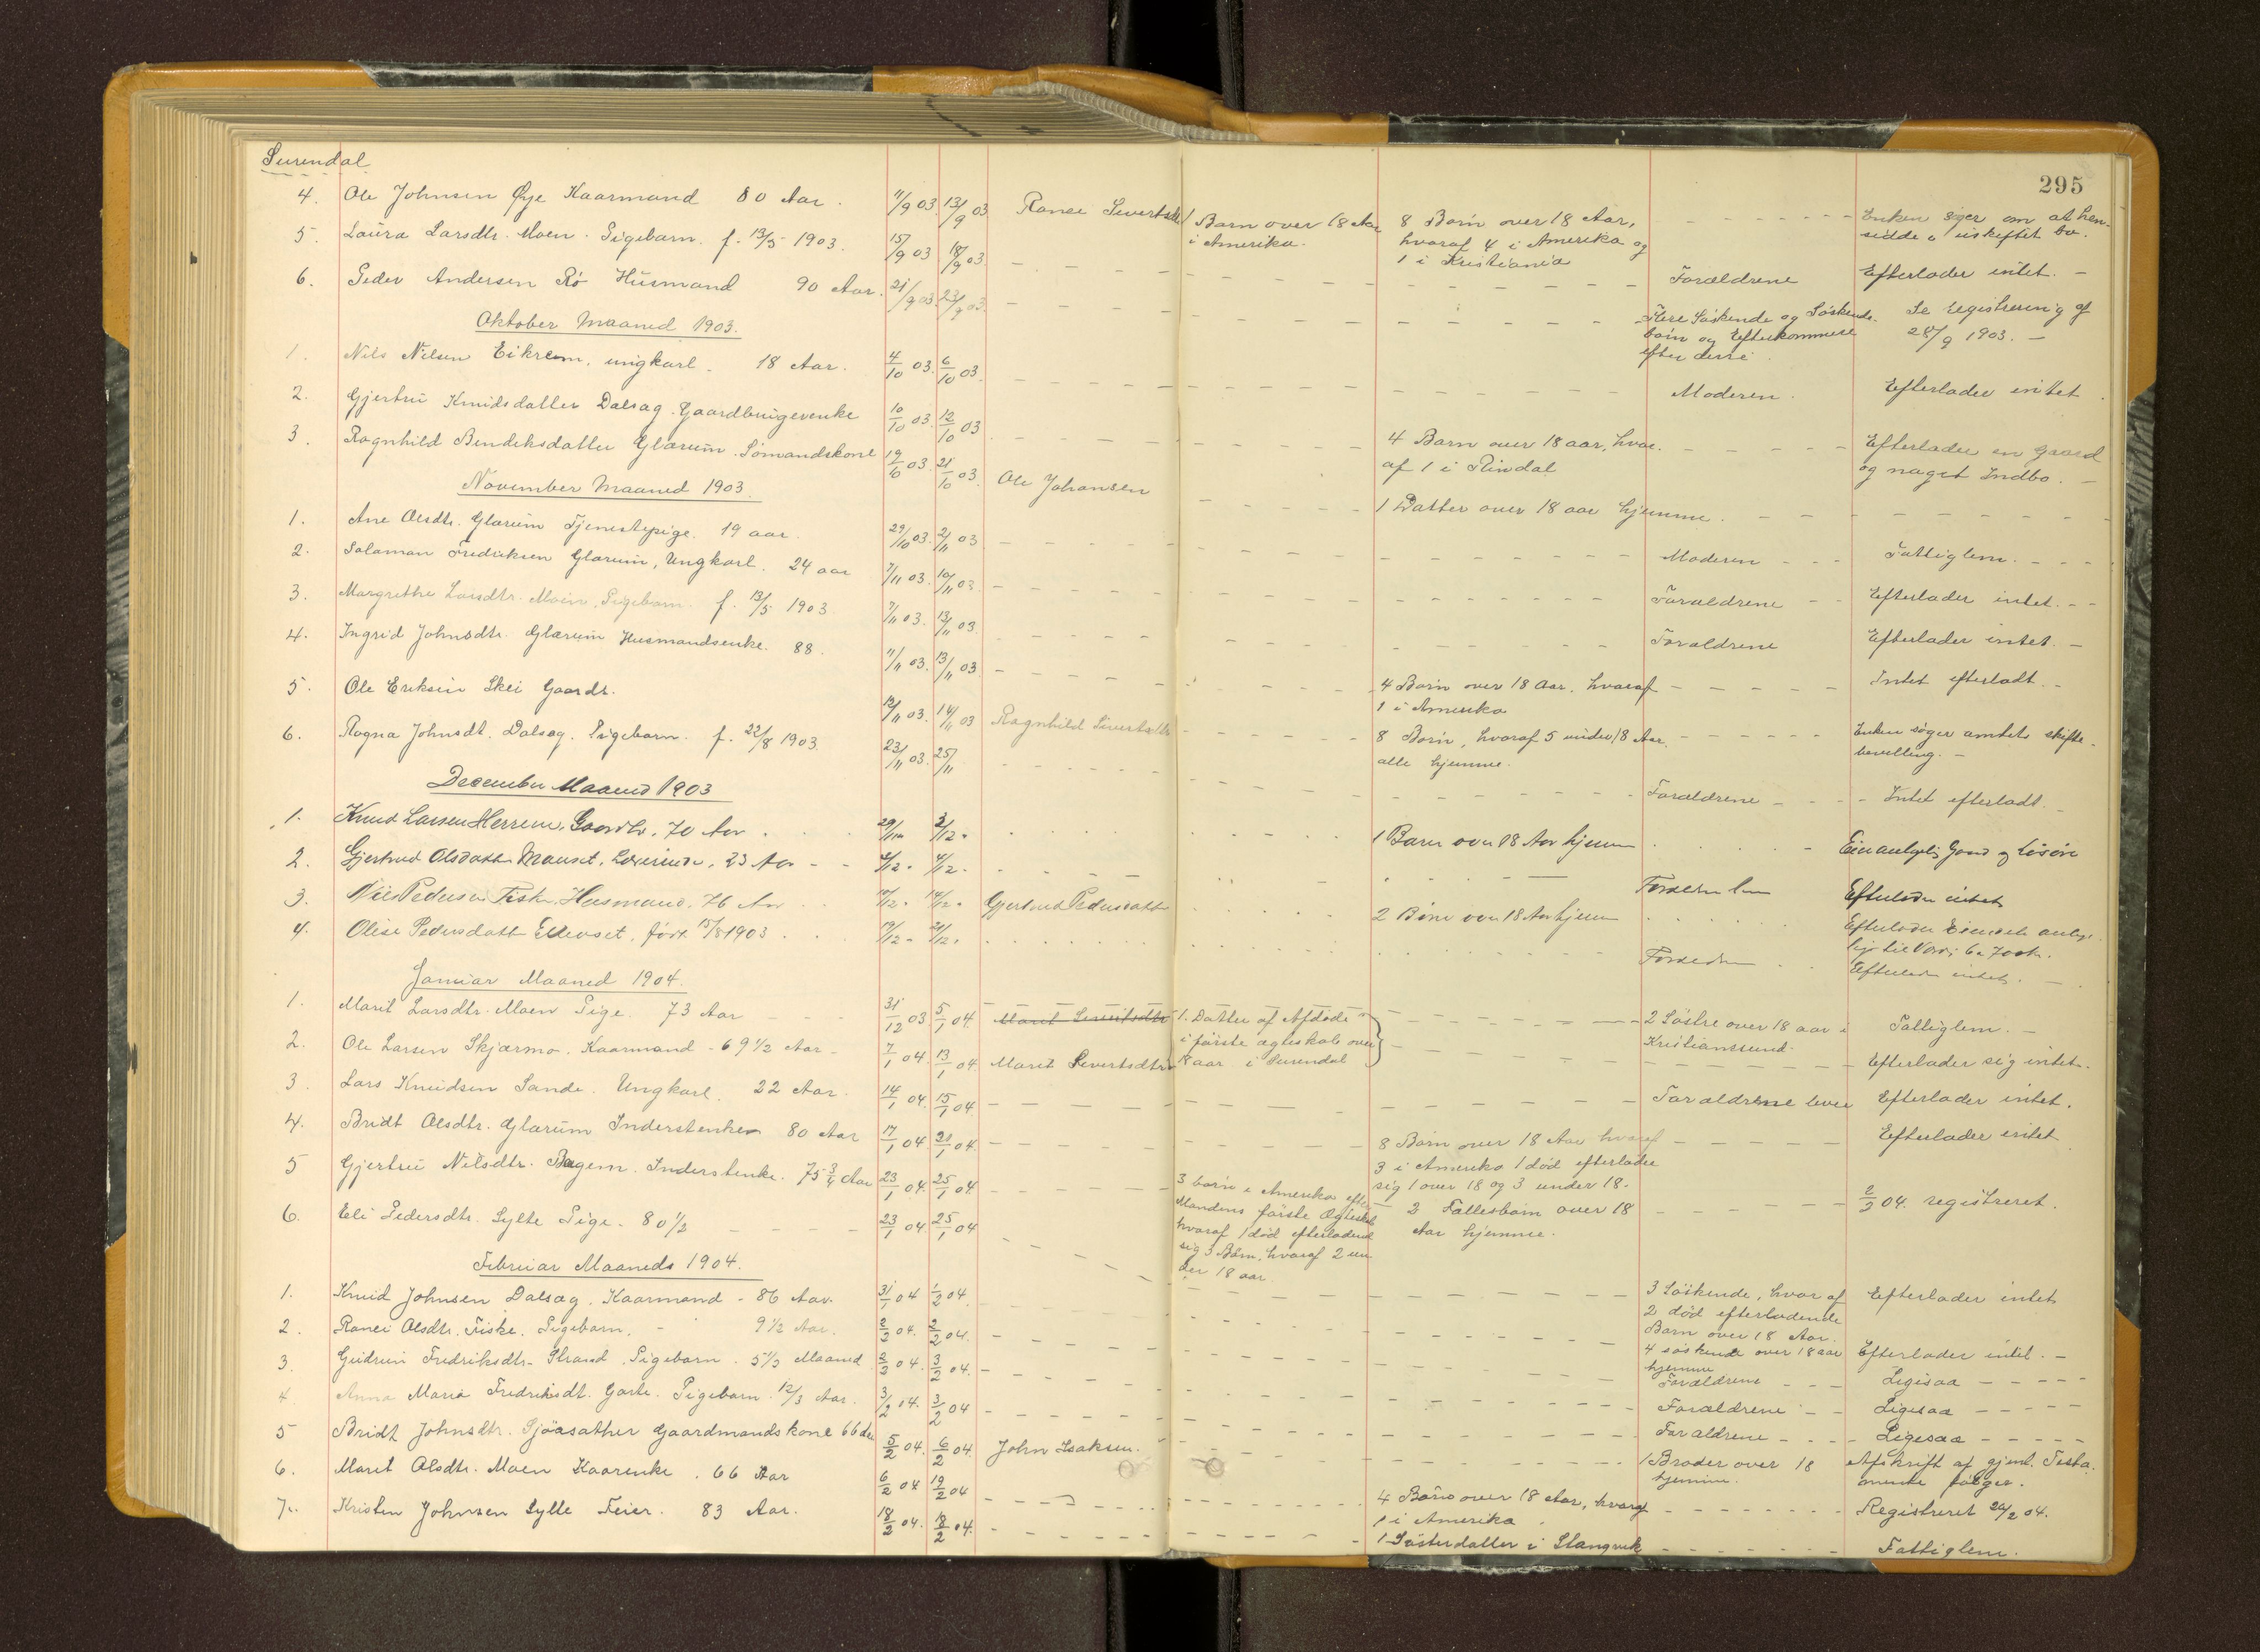 Surendal
295
4. Ole Johnsen Øye Kaarmand 80 Aar. 11/9 03. 13/9 03. Ranei Sivertsdtr 1 Barn over 18 Aar 8 Børn over 18 Aar, Enken siger om at hen-
i Amerika. hvoraf 4 i Amerika og sidde i uskiftet bo.
1 i Kristiania
5. Laura Larsdtr. Moen. Pigebarn. f. 13/5 1903. 15/9 03. 18/9 03. Forældrene Efterlader intet.
6. Peder Andersen Rö Husmand 90 Aar. 21/9 03. 23/9 03. Flere Söskende og Söskende- Se registrering af
börn og Efterkommere 28/9 1903.
efter disse.
Oktober Maaned 1903.
1. Nils Nilsen Eikrem, ungkarl. 18 Aar. 4/10 03. 6/10 03. Moderen. Efterlader intet
2. Gjertru Knudsdatter Dalsøg. Gaardbrugerenke 10/10 03. 12/10 03 4 Børn over 18 aar, hvor- Efterlader en gaard
af 1 i Rindal og noget Indbo.
3. Ragnhild Bendiksdatter Glærum. Sömandskone 19/10 03. 21/10 03. Ole Johansen 1 Datter over 18 aar hjemme.
November Maaned 1903.
1. Ane Olsdtr. Glærum Tjenestepige. 19 aar. 29/10 03. 2/11 03 Moderen Fattiglem.
2. Salamon Fredriksen Glærum, Ungkarl. 24 aar 7/11 03. 10/11 03. Forældrene Efterlader intet.
3. Margrethe Larsdtr. Moen, Pigebarn. f. 13/5 1903 7/11 03. 13/11 03. Forældrene Efterlader intet.
4. Ingrid Johnsdtr. Glærum Husmandsenke. 88. 11/11 03. 13/11 03 4 Børn over 18 Aar, hvoraf Intet efterladt.
1 i Amerika
5. Ole Eriksen Skei Gaardbr. 12/11 03. 14/11 03 Ragnhild Sivertsdtr 8 Børn, hvoraf 5 under 18 Aar. Enken söger amtets skifte-
alle hjemme. bevilling.
6. Ragna Johnsdt. Dalsøg. Pigebarn. f. 22/8 1903. 23/11 03. 25/11 Forældrene Intet efterladt.
December Maaned 1903
1. Knud Larsen Herrem, Gaardbr. 70 Aar. 29/11 3/12 1 Barn over 18 Aar hjemme Gaard og Lösöre
2. Gjertrud Olsdatter Mauset, 23 Aar Efterlader intet
3. Nils Pedersen Fiske. Husmand. 76 Aar 14/12 Gjertrud Pedersdatter 2 Børn over 18 Aar hjemme Efterlader
4. Olise Pedersdatter Ellevset, født 15/8 1903. 21/12 Forældrene Efterlader intet.
Januar Maaned 1904.
1. Marit Larsdtr. Moen Pige. 73 Aar 31/12 03. 5/1 04. Marit Sivertsdtr 1 Datter af Afdøde 2 Söstre over 18 aar i Fattiglem.
i første ægteskab over Kristianssund.
2. Ole Larsen Skjærmo. Kaarmand - 69 1/2 Aar - 7/1 04. 13/1 04. Marit Sivertsdtr 18 aar i Surendal Efterlader sig intet.
3. Lars Knudsen Sande. Ungkarl. 22 Aar. 14/1 04. 15/1 04. Forældrene lever Efterlader intet.
4. Bridt Olsdtr. Glærum Inderstenke 80 Aar 17/1 04. 21/1 04. 8 Børn over 18 Aar hvoraf Efterlader intet
3 i Amerika 1 död efterlader
sig 1 over 18 og 3 under 18.
5 Gjertru Nilsdtr. Bøgem. Inderstenke. 75 3/4 Aar 23/1 04. 25/1 04. 3 børn i Amerika efter 2 Fællesbørn over 18 2/2 04. registreret.
Mandens første Ægteskab Aar hjemme.
hvoraf 1 død efterladende
sig 3 Børn, hvoraf 2 un-
der 18 aar.
6. Eli Pedersdtr. Sylte Pige. 80 1/2 23/1 04. 25/1 04
Februar Maaneds 1904.
1. Knud Johnsen Dalsøg. Kaarmand - 86 Aar. 31/1 04 1/2 04. 3 Söskende, hvor af Efterlader intet
2 död efterladende
Børn over 18 Aar.
2. Ranei Olsdtr. Fiske. Pigebarn. 9 1/2 Aar. 2/2 04. 2/2 04. 4 söskende over 18 aar Efterlader intet.
hjemme
3. Gudrun Fredriksdtr. Strand. Pigebarn. 5 1/2 Maaned 2/2 04. 3/2 04. Forældrene Ligesaa
4. Anna Maria Fredriksdt. Garte. Pigebarn. 1 2/3 Aar. 3/2 04. 3/2 04 Forældrene Ligesaa
Forældrene Ligesaa
5 Bridt Johnsdtr. Sjöasæther Gaardmandskone 66 Aar 5/2 04. 6/2 04 John Isaksen. 1 Broder over 18 Afskrift af gjenl. Testa-
hjemme. mente følger.
6. Marit Olsdtr. Moen Kaarenke. 66 Aar 6/2 04 19/2 04 4 Børn over 18 Aar, hvoraf Registreret 24/2 04.
1 i Amerika
7. Kristen Johnsen Sylte Feier. 83 Aar. 18/2 04. 18/2 04. 1 Sösterdatter i Stangvik Fattiglem.